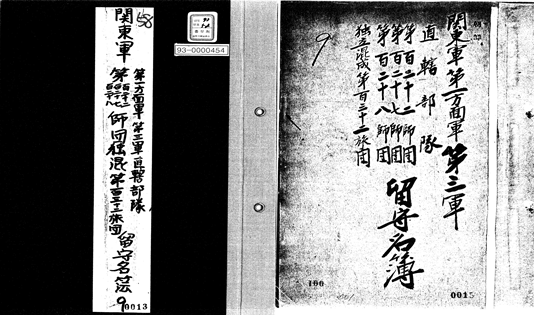 58
関東軍
第一方面軍第三軍直轄部隊
第百二十二
百二十七
百二十八
師団独混第百三十二旅団
留守名簿
9
0013
93-0000454
関東軍第一方面軍第三軍
直轄部隊
第百二十二師団
第百二十七師団
第百二十八師団
独立混成第百三十二旅団
留守名簿
9
100
0015